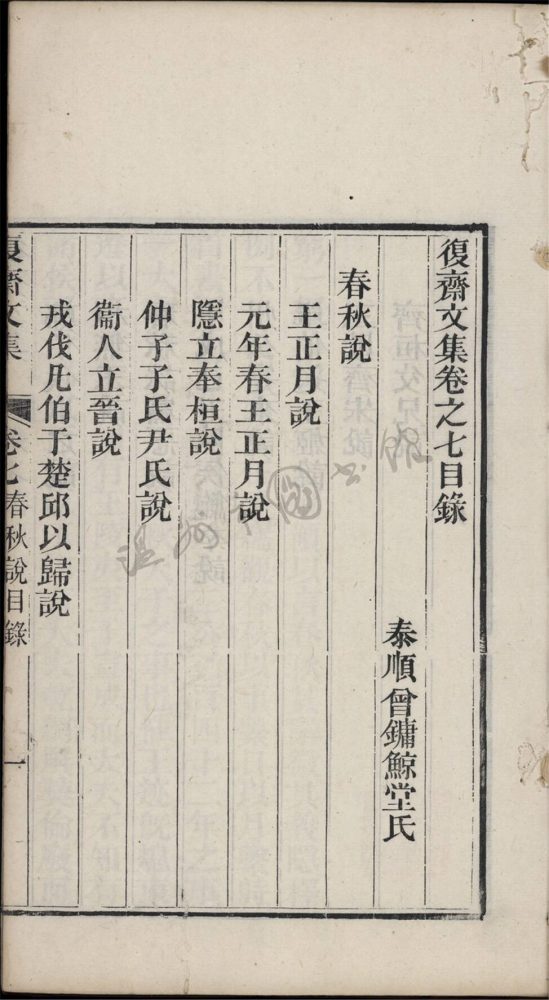 復齋文集卷之七目錄
泰順曾鏞鯨堂氏
春秋說
王正月說
元年春王正月說
隱立奉桓說
仲子子氏尹氏說
衞人立晉說
戎伐凡伯于楚邱以歸說
復齋文集 卷七 春秋說目錄 一